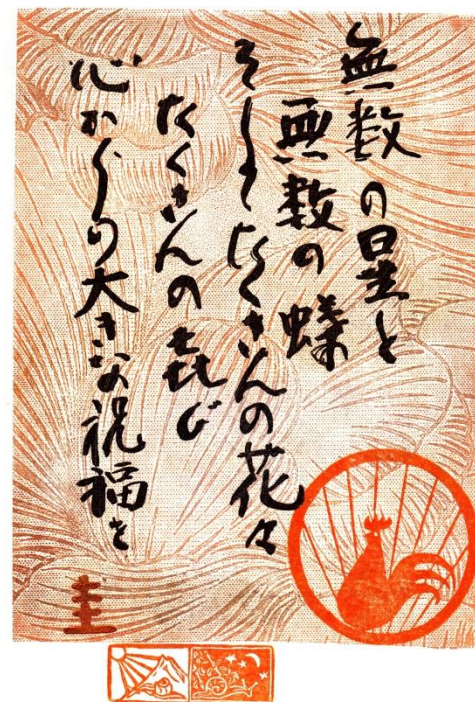 無数の星と
無数の蝶
そしてたくさんの花々
たくさんの喜び
心からの大きなの祝福を
圭